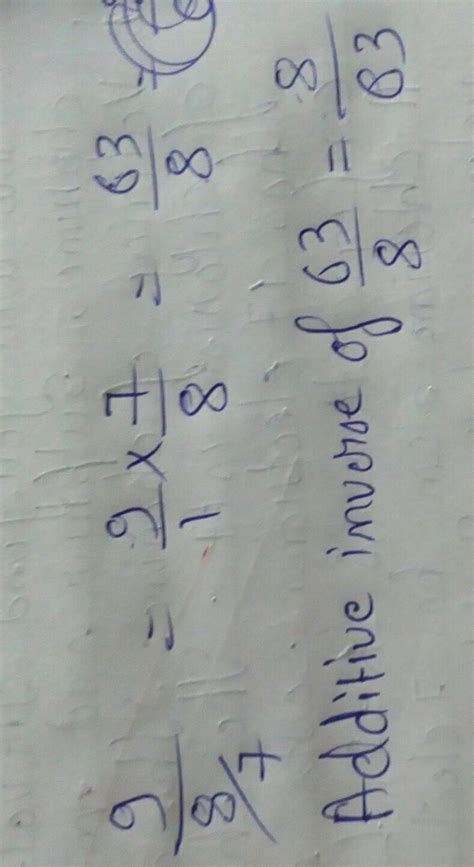 9/8/7 = 9/1 × 7/8 = 63/8
Additive inverse of 63/8 = 8/63